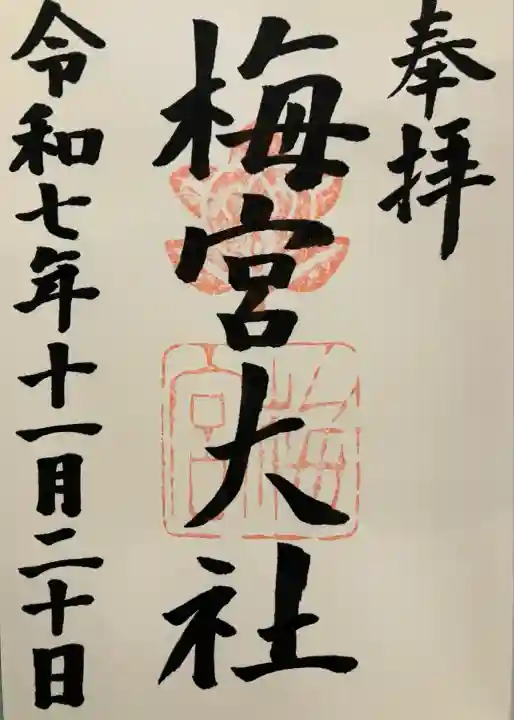 奉拝
梅宮大社
梅宮
令和七年十一月二十日